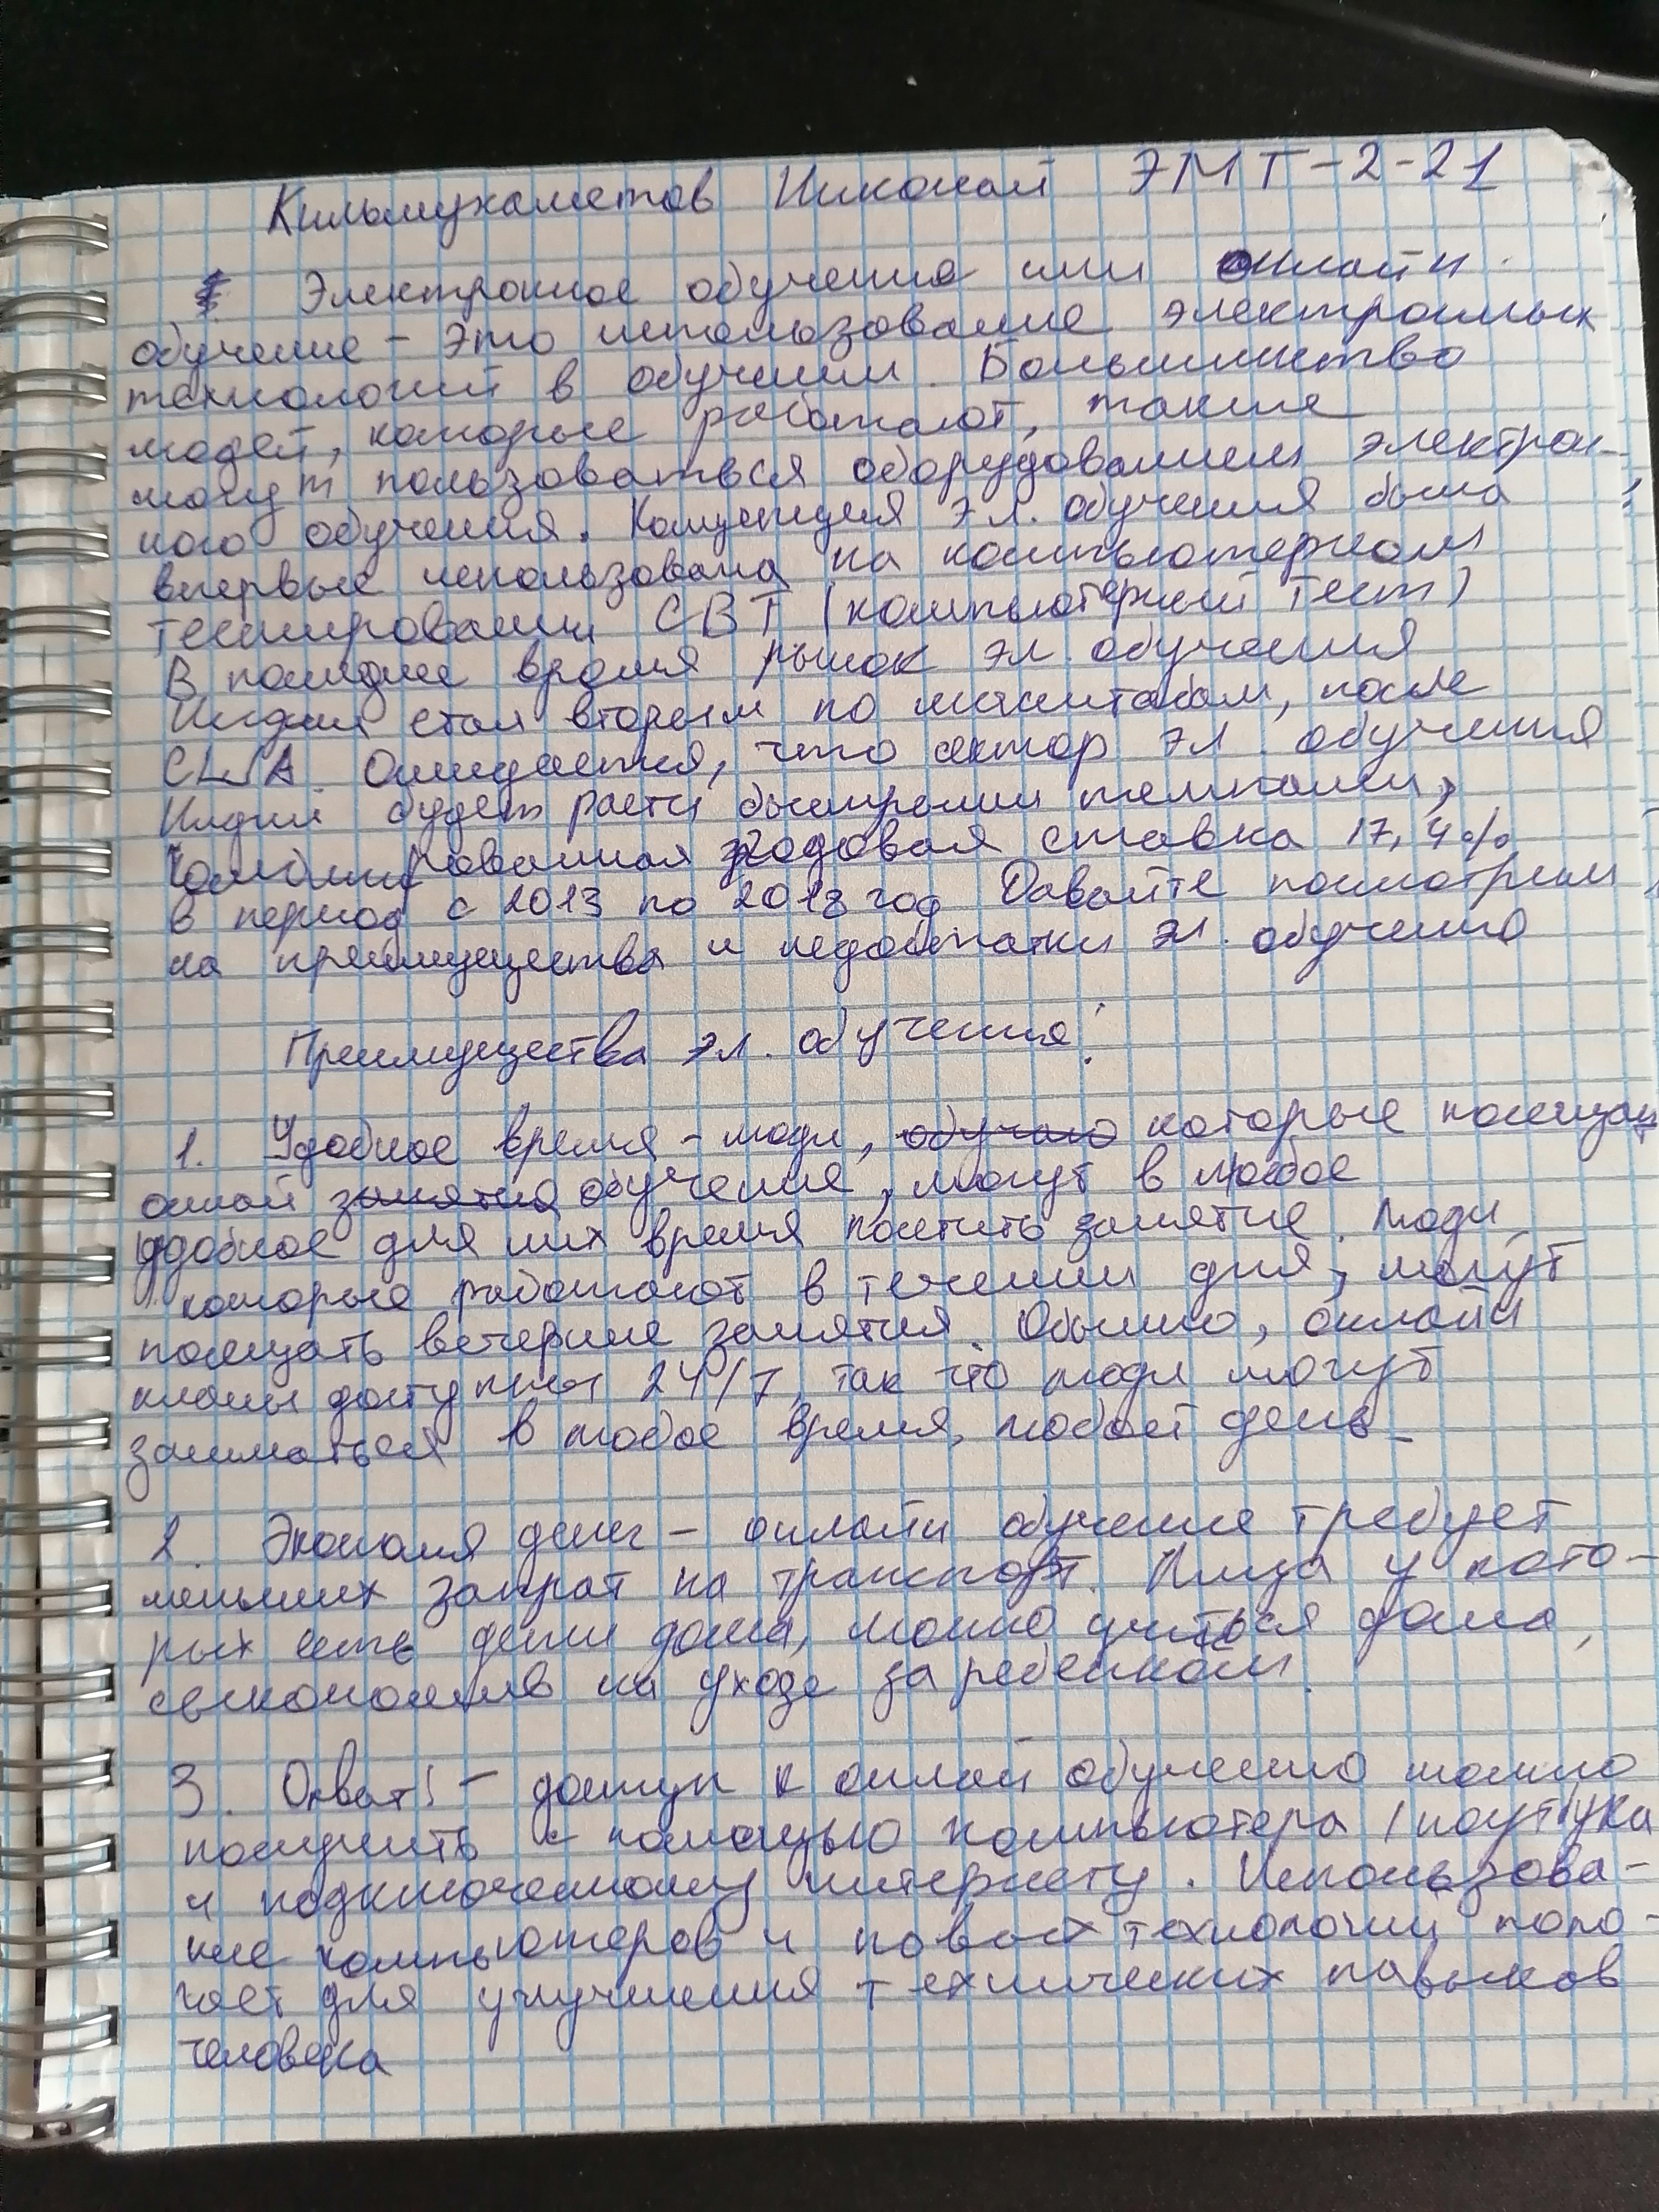 Кильмухаметов Николай ЭМТ-2-21
Электронное обучение или онлайн
обучение - это использование электронных
технологий в обучении. Большинство
людей, которые работают, также
могут пользоваться оборудованием электрон-
ного обучения. Концепция эл. обучения была
впервые использована на компьютерном
тестировании CBT (компьютерный тест)
В последнее время рынок эл. обучения
Индии стал вторым по масштабам, после
США. Ожидается, что сектор эл. обучения
Индии будет расти быстрыми темпами,
Комбинированная годовая ставка 17,4%
в период с 2013 по 2018 год Давайте посмотрим
на преимущества и недостатки эл. обучения
Преимущества эл. обучения:
1. Удобное время - люди, обучаю которые посещают
онлай занятия обучения, могут в любое
удобное для них время посетить занятие. Люди,
которые работают в течении дня, могут
посещать вечерние занятия. Обычно, онлайн
классы доступны 24/7, так что люди могут
заниматься в любое время, любой день.
2. Экономия денег - онлайн обучение требует
меньших затрат на транспорт. Лица у кото-
рых есть дети дома, можно учиться дома,
сэкономив на уходе за ребенком.
3. Охват! - доступ к онлай обучению можно
получить с помощью компьютера / ноутбука
и подключенному интернету. Использова-
ние компьютеров и новых технологий помо-
гает для улучшения технических навыков
человека